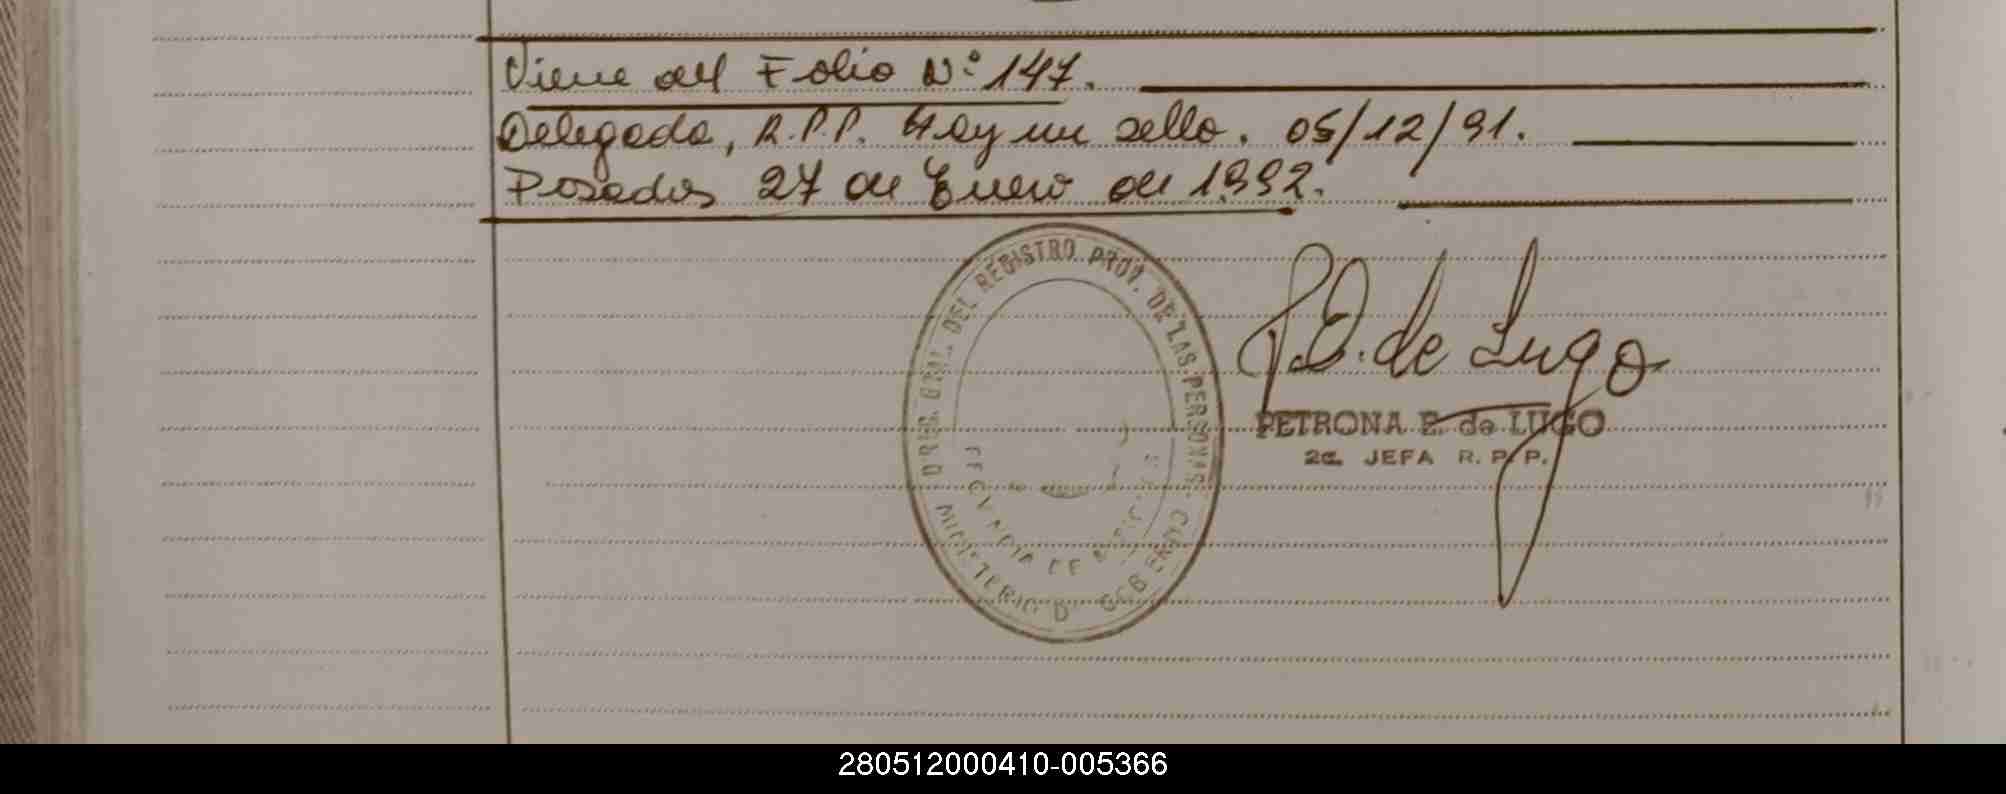 Viene del Folio N° 147.
Delegada, R.P.P. Hay un sello. 05/12/91.
Posadas 27 de Enero de 1992.
DIREC. GRAL. DEL REGISTRO PROV. DE LAS PERSONAS
MINISTERIO DE GOBIERNO
P.E. de Lugo
PETRONA E. de LUGO
2a. JEFA R. P. P.
280512000410-005366